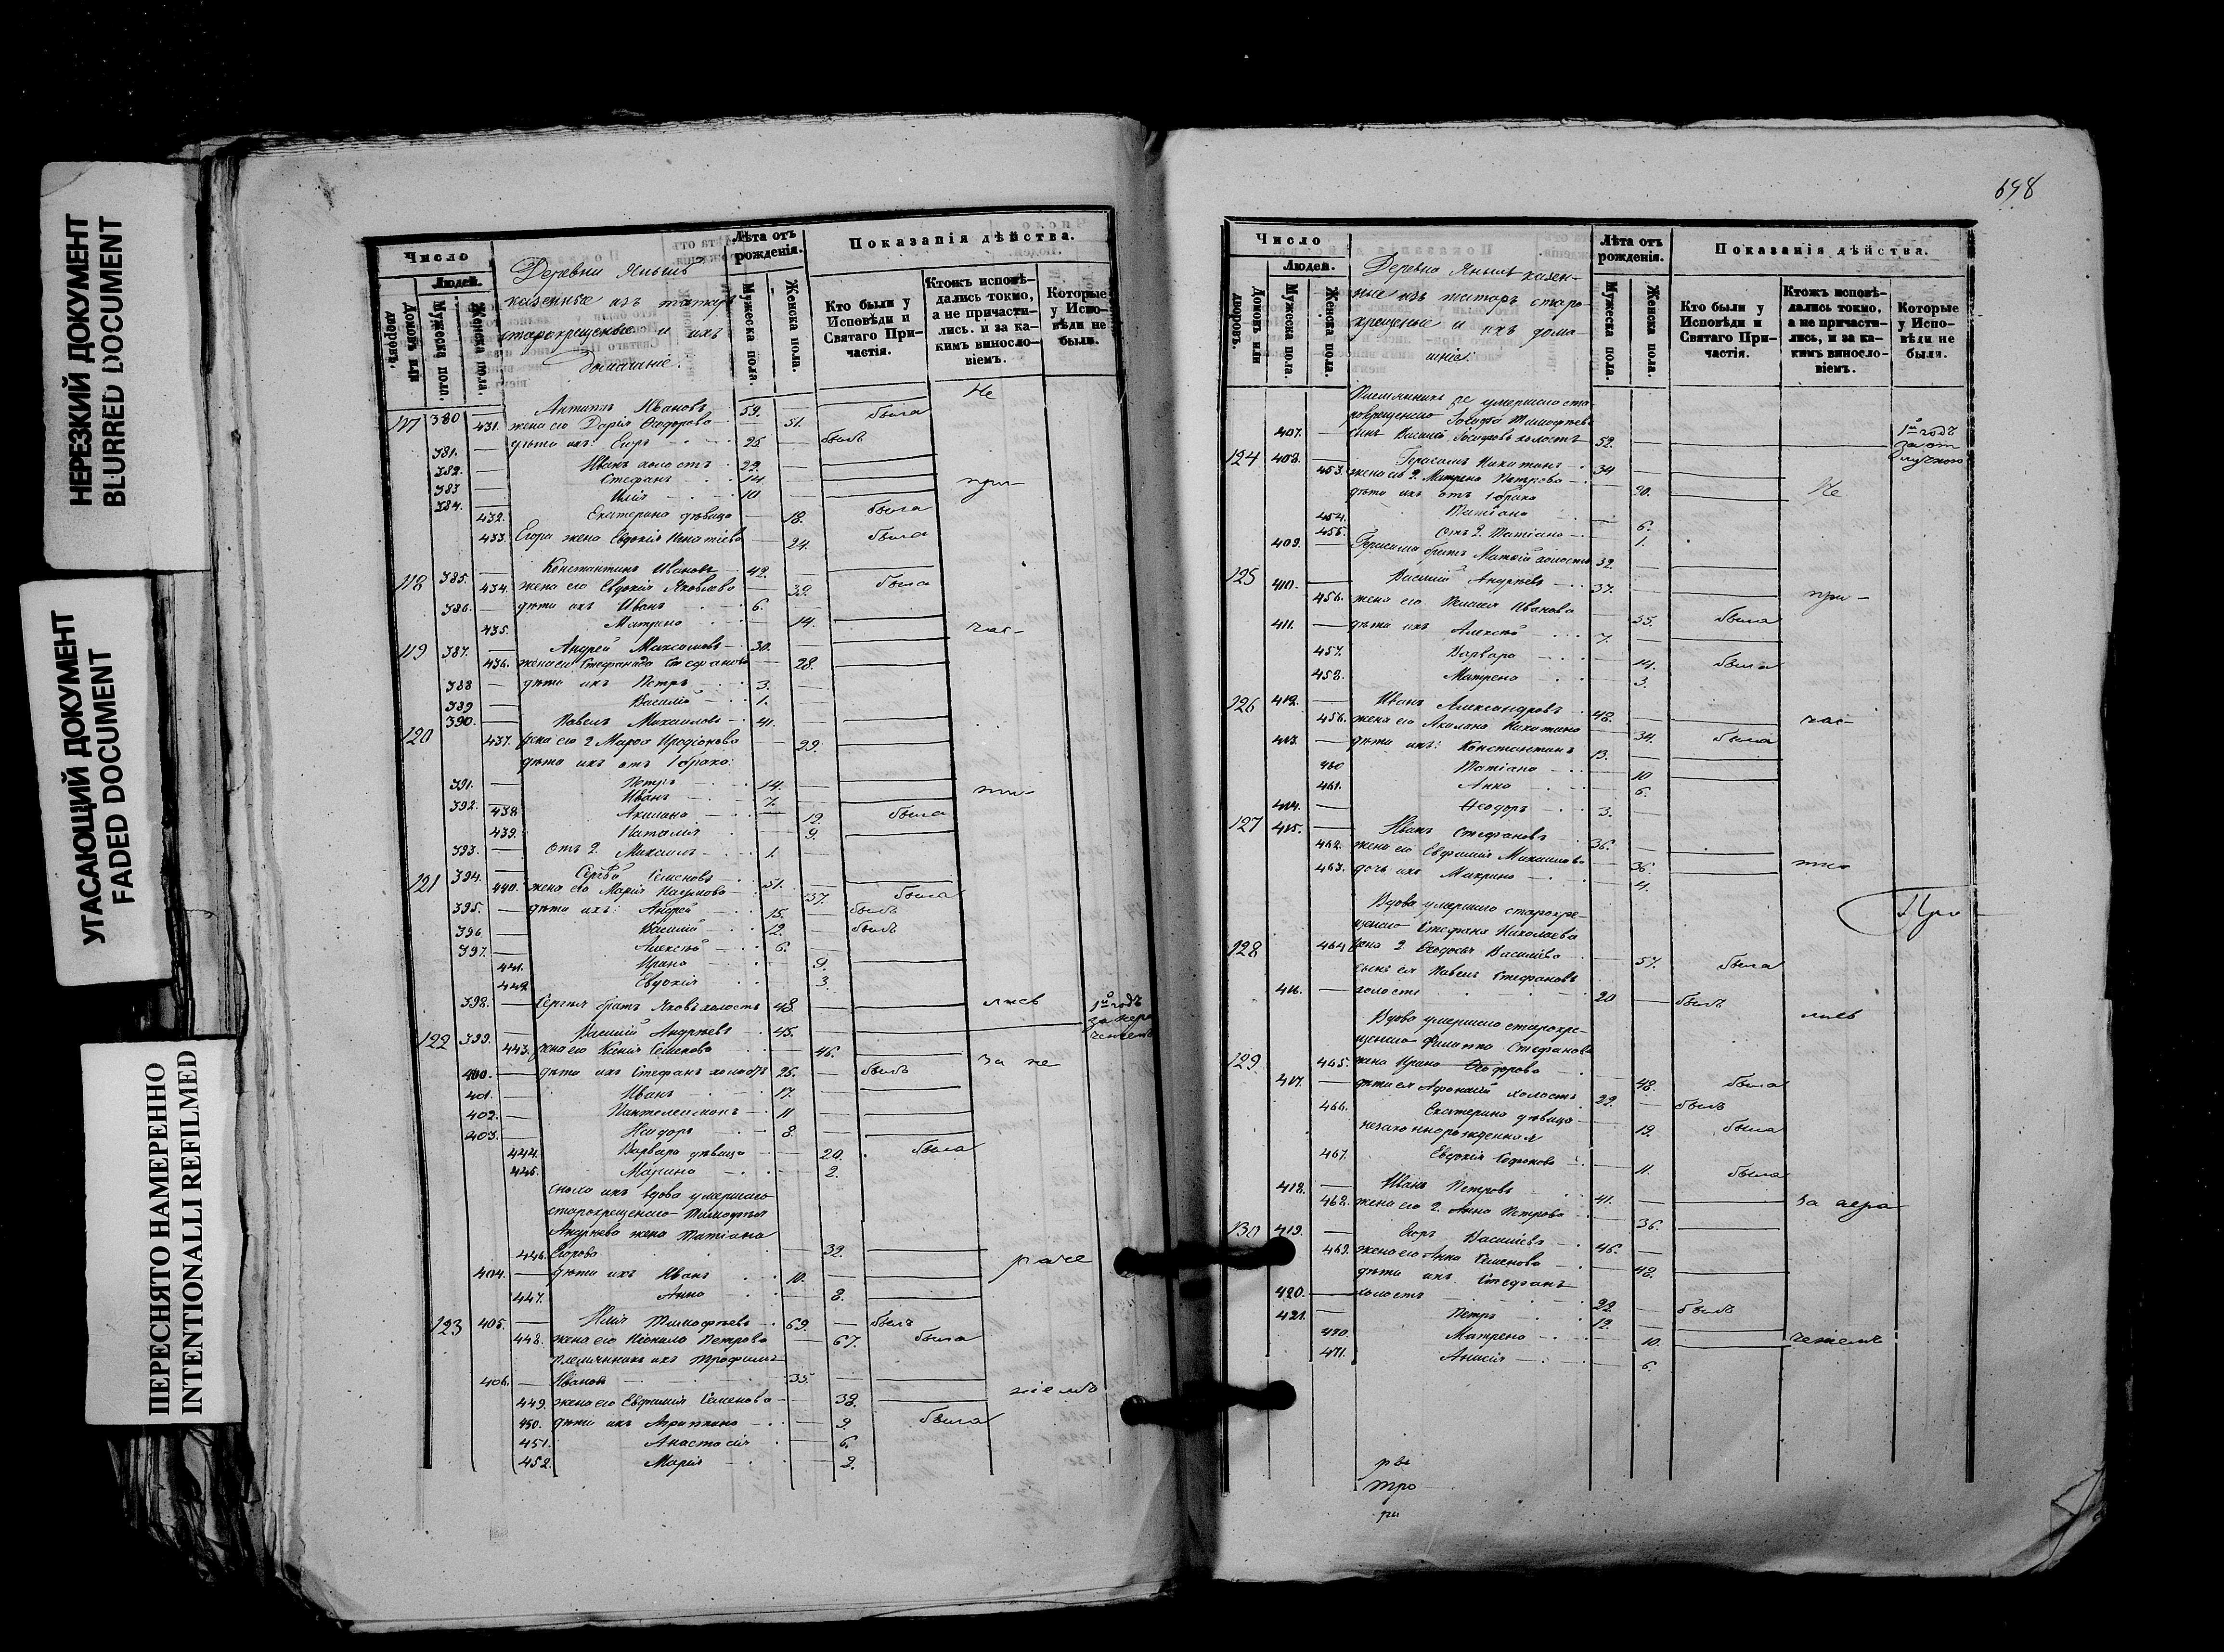 НЕРЕЗКИЙ ДОКУМЕНТ
BLURRED DOCUMENT
УГАСАЮЩИЙ ДОКУМЕНТ
FADED DOCUMENT
ПЕРЕСНЯТО НАМЕРЕННО
INTENTIONALLI REFILMED
Число
Людей.
Домовъ или дворовъ.
Мужеска пола.
Женска пола.
Деревни Янылъ
казенные изъ татаръ
старокрещеные и ихъ
домашніе.
Лѣта отъ рожденія.
Мужеска пола.
Женска пола.
Показанія дѣйства.
Кто были у Исповѣди и Святаго Причастія.
Ктожъ исповѣдались токмо, а не причастились. и за какимъ винословіемъ.
Которые у Исповѣди не были.
117 380 Антипъ Ивановъ 59. Не
431. жена его Дарія Ѳеодорова 51. была
381. дѣти ихъ: Егоръ 25 былъ
382. Иванъ холостъ 22.
383 Стефанъ 14. при-
384. Илія 10
432. Екатерина дѣвица 18. была
433. Егора жена Евдокія Игнатіева 24. была
118 385. Константинъ Ивановъ 42.
434. жена его Евдокія Яковлева 39. была
386. дѣти ихъ Иванъ 6.
435. Матрона 14. час-
119 387. Андрей Максимовъ 30.
436. жена его Стефанида Стефанова 28.
388 дѣти ихъ Петръ 3.
389 Василій 1.
120 390. Павелъ Михаиловъ 41.
437. жена его 2 Марѳа Иродіонова 29.
дѣти ихъ отъ 1 брака:
391. Петръ 14. ти-
392. Иванъ 7.
438 Акилина 12. была
439. Наталія 9.
393. Отъ 2. Михаилъ 1.
121 394. Сергѣй Семеновъ 51.
440. жена его Марія Наумова 37. была
395. дѣти ихъ: Андрей 15. былъ
396 Василій 12. былъ
397. Алексѣй 6.
441. Ирина 9.
442. Евдокія 3.
398. Сергія братъ Яковъ холостъ 48. лись 1й годъ
за нера
122 399. Василій Андреевъ 45. ченіемъ
443. жена его Ксенія Семенова 46.
400. дѣти ихъ Стефанъ холостъ 25. былъ за не
401. Иванъ 17.
402. Пантелеимонъ 11
403. Исидоръ 8.
444. Варвара дѣвица 20. была
445. Марина 2.
сноха ихъ вдова умершаго
старокрещенаго Тимоѳея
Андреева жена Татіана
446. Егорова 32.
404. дѣти ихъ Иванъ 10. раде
447. Анна 8.
123 405. Илія Тимоѳеевъ 69. былъ
448. жена его Неонила Петрова 67. была
племянникъ ихъ Трофимъ
406. Ивановъ 35.
449. жена его Евфимія Семенова 38. ніемъ
450. дѣти ихъ Агриппина 9 была
451. Анастасія 6.
452. Марія 2.
698
Число
Людей.
Домовъ или дворовъ.
Мужеска пола.
Женска пола.
Деревна Янылъ казен-
ные изъ татаръ старо-
крещеные и ихъ дома-
шніе.
Лѣта отъ рожденія.
Мужеска пола.
Женска пола.
Показанія дѣйства.
Кто были у Исповѣди и Святаго Причастія.
Ктожъ исповѣдались токмо, а не причастились, и за какимъ винословіемъ.
Которые у Исповѣди не были.
умершаго ста-
рокрещенаго Іосифа Тимоѳеева
407. сынъ Василій Іосифовъ холостъ 52. 1й годъ
за от
лучкою
124 408. Герасимъ Никитинъ 34
453. жена его 2. Матрона Петрова 20. Не
дѣти ихъ отъ 1 брака
454. Татіана 6.
455. Отъ 2. Татіана 1.
409. Герасима братъ Матѳей холостъ 32.
125 410. Василій Андреевъ 37. при-
456. жена его Пелагія Иванова 35. была
411. дѣти ихъ Алексѣй 7.
457. Варвара 14. была
458. Матрона 3.
126 412. Иванъ Александровъ 48. час-
456. жена его Акилина Никитина 34. была
413. дѣти ихъ: Константинъ 13.
460 Татіана 10
461. Анна 6.
414. Ѳеодоръ 3.
127 415. Иванъ Стефановъ 36.
462. жена его Евфимія Михаилова 36. ти
463. дочь ихъ Макрина 4.
При
Вдова умершаго старокре-
щенаго Стефана Николаева
128 464 жена 2 Ѳеодосія Васильева 57. была
сынъ ея Павелъ Стефановъ
416. холостъ 20 былъ
Вдова умершаго старокре- лись
щенаго Филиппа Стефанова
129. 465. жена Ирина Ѳеодорова 48. была
417. дѣти ея Аѳанасій холостъ 22. былъ
466. Екатерина дѣвица 19. была
незаконнорожденная
467. Евдокія 11. была
418. Иванъ Петровъ 41.
468. жена его 2. Анна Петрова 36. за нера
130 419. Егоръ Васильевъ 46.
469. жена его Анна Семенова 48.
дѣти ихъ Стефанъ
420. холостъ 22. былъ
421. Петръ 12.
470. Матрона 10. ченіемъ
471. Анисія 6.